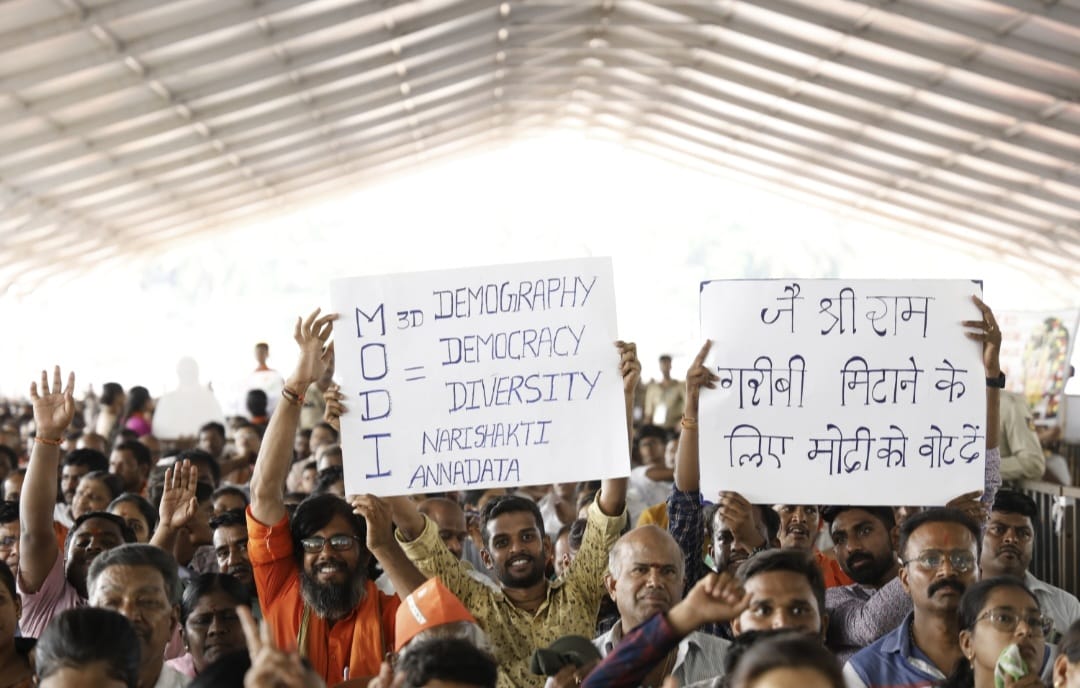 MODI = 3D DEMOGRAPHY
DEMOCRACY
DIVERSITY
NARISHAKTI
ANNADATA
जै श्री राम
गरीबी मिटाने के
लिए मोदी को वोट दें